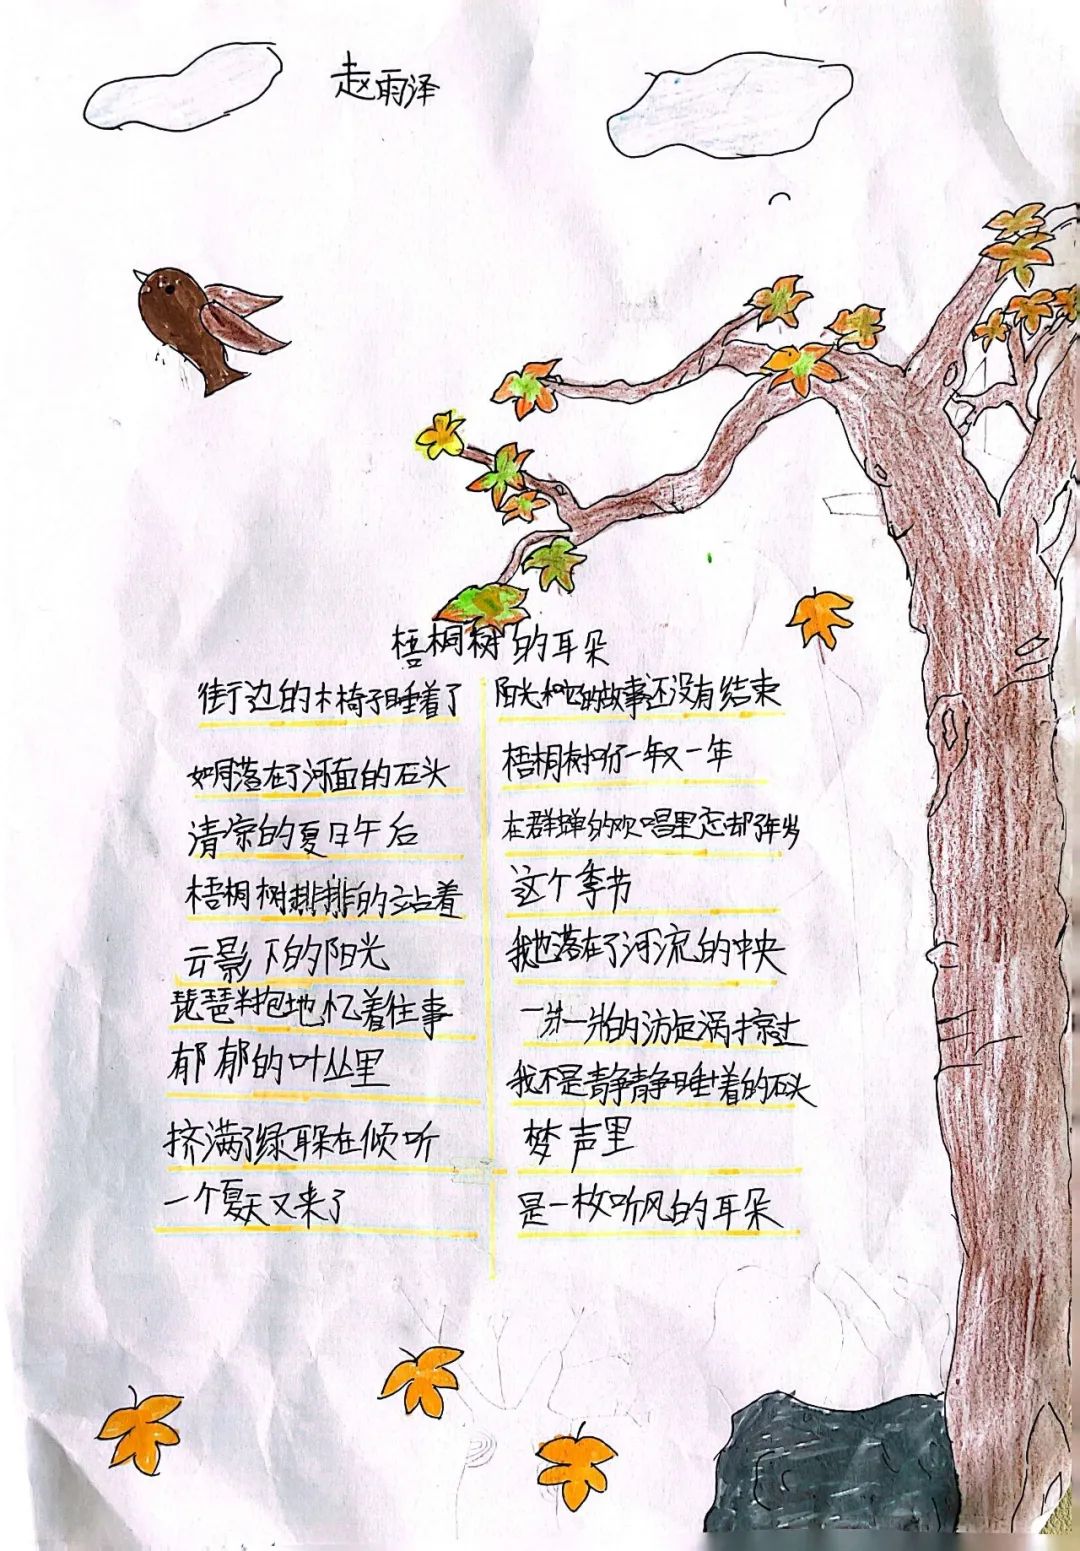 赵雨泽
梧桐树的耳朵
街边的木椅子睡着了
如同落在了河面的石头
清凉的夏日午后
梧桐树排排的站着
云影下的阳光
琵琶半抱地忆着往事
郁郁的叶丛里
挤满了绿耳朵在倾听
一个夏天又来了
阳光和它的故事还没有结束
梧桐树听一年又一年
在群蝉的欢唱里忘却了年岁
这个季节
我也落在了河流的中央
一波一波的漩涡擦过
我不是静静睡着的石头
梦声里
是一枚听风的耳朵